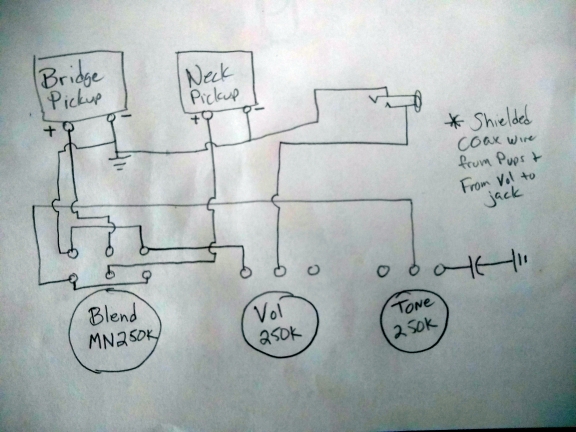 Bridge
Pickup
+
-
Neck
Pickup
+
-
* Shielded
COax wire
from Pups +
From Vol to
jack
Blend
MN250K
Vol
250K
Tone
250K